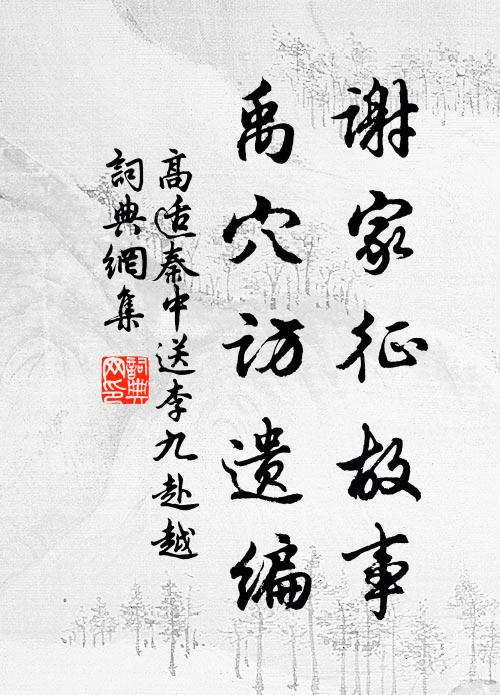 谢家征故事
禹穴访遗编
高适秦中送李九赴越
詞典網集
詞典网印